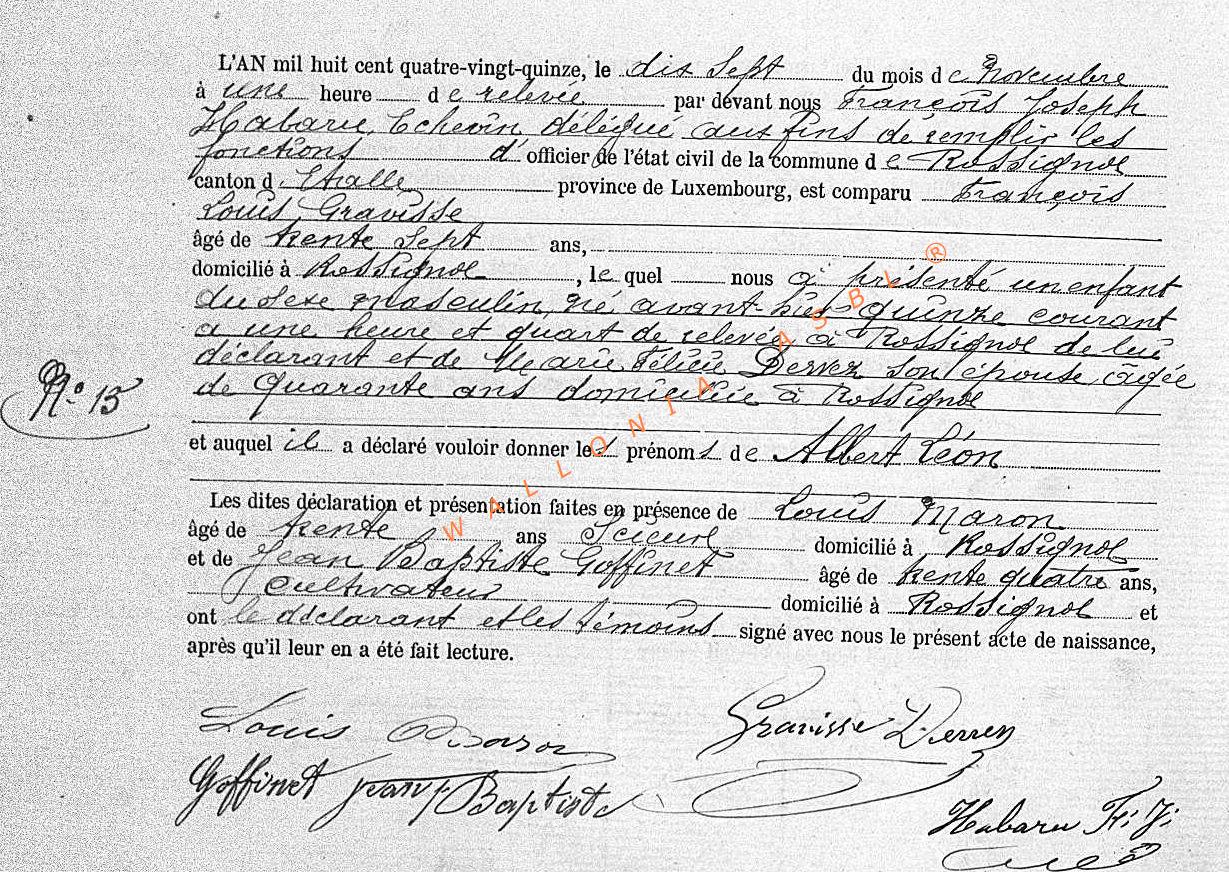 L'AN mil huit cent quatre-vingt-quinze, le dix Sept du mois de Novembre
à une heure de relevée par devant nous François Joseph
Habaru, Echevin délégué aux fins de remplir les
fonctions d'officier de l'état civil de la commune de Rossignol
canton d'Etalle province de Luxembourg, est comparu François
Louis Gravisse
âgé de trente Sept ans,
domicilié à Rossignol, le quel nous a présenté un enfant
du sexe masculin, né avant-hier quinze courant
a une heure et quart de relevée, à Rossignol de lui
déclarant et de Marie Félicie Derven son épouse, âgée
de Quarante ans domiciliée à Rossignol
N° 15
et auquel il a déclaré vouloir donner les prénoms de Albert Léon
Les dites déclaration et présentation faites en présence de Louis Maron
âgé de trente ans Scieur domicilié à Rossignol
et de Jean Baptiste Goffinet âgé de trente quatre ans,
Cultivateur domicilié à Rossignol et
ont le déclarant et les témoins signé avec nous le présent acte de naissance,
après qu'il leur en a été fait lecture.
Louis Maron
Gravisse Derven
Goffinet jean Baptiste
Habaru Fr. J.
WALLONIA ASBL ®